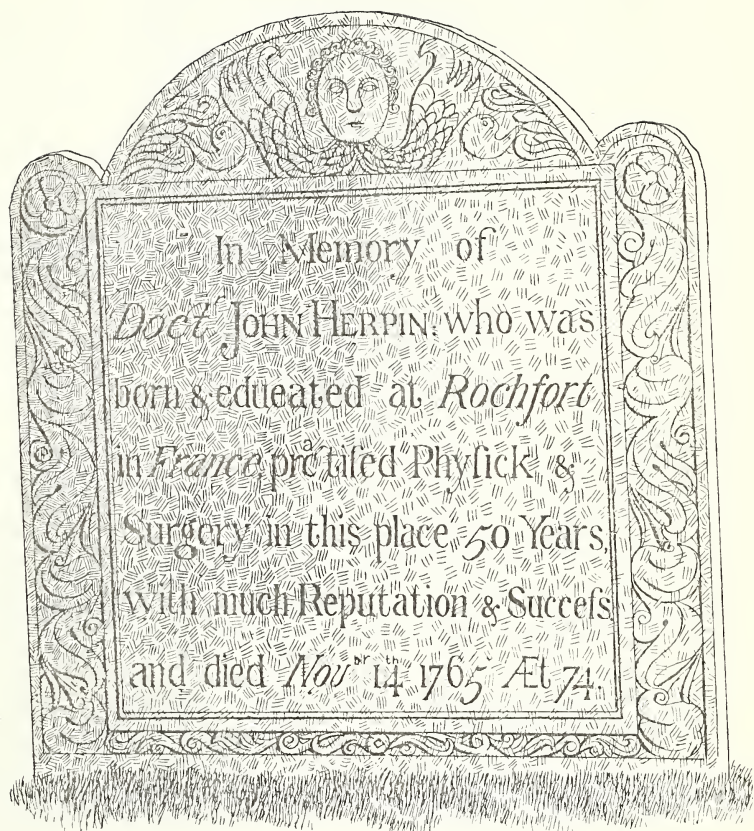 In Memory of
Doctʳ JOHN HERPIN: who was
born & edueated at Rochfort
in France, prᵃctiſed Phyſick &
Surgery in this place 50 Years,
with much Reputation & Succeſs
and died Novᵇʳ 14ᵗʰ 1765 Æt 74.